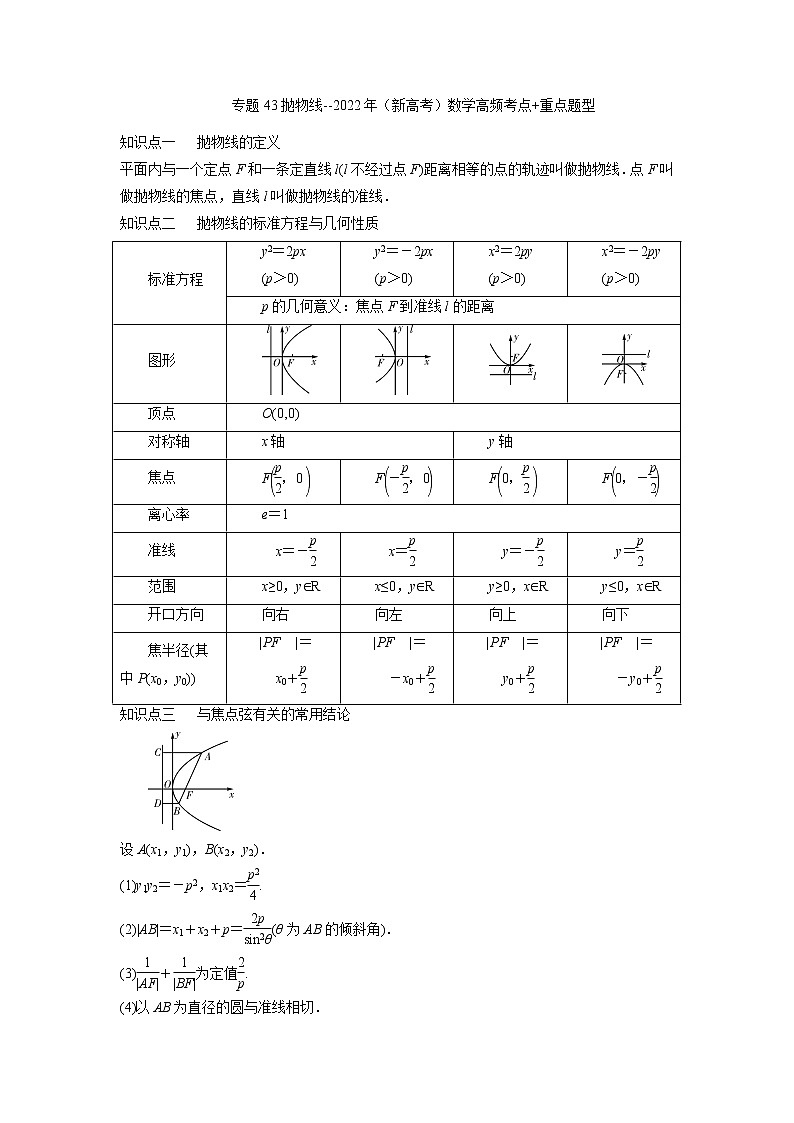 专题 43 抛物线--2022 年（新高考）数学高频考点+重点题型
知识点一 抛物线的定义
平面内与一个定点 F 和一条定直线 l(l 不经过点 F)距离相等的点的轨迹叫做抛物线.点 F 叫
做抛物线的焦点，直线 l 叫做抛物线的准线.
知识点二 抛物线的标准方程与几何性质
标准方程 y2＝2px (p＞0) y2＝－2px (p＞0) x2＝2py (p＞0) x2＝－2py (p＞0)
p 的几何意义：焦点 F 到准线 l 的距离
图形 l y O F x y l F O x y F O x l y O l x F
顶点 O(0,0)
对称轴 x 轴 y 轴
焦点 F(p/2，0) F(－p/2，0) F(0，p/2) F(0，－p/2)
离心率 e＝1
准线 x＝－p/2 x＝p/2 y＝－p/2 y＝p/2
范围 x≥0，y∈R x≤0，y∈R y≥0，x∈R y≤0，x∈R
开口方向 向右 向左 向上 向下
焦半径(其中 P(x₀，y₀)) |PF |＝x₀＋p/2 |PF |＝－x₀＋p/2 |PF |＝y₀＋p/2 |PF |＝－y₀＋p/2
知识点三 与焦点弦有关的常用结论
y
C A
O F x
D B
设 A(x₁，y₁)，B(x₂，y₂).
(1)y₁y₂＝－p²，x₁x₂＝p²/4.
(2)|AB|＝x₁＋x₂＋p＝2p/sin²θ(θ 为 AB 的倾斜角).
(3)1/|AF|＋1/|BF|为定值2/p.
(4)以 AB 为直径的圆与准线相切.